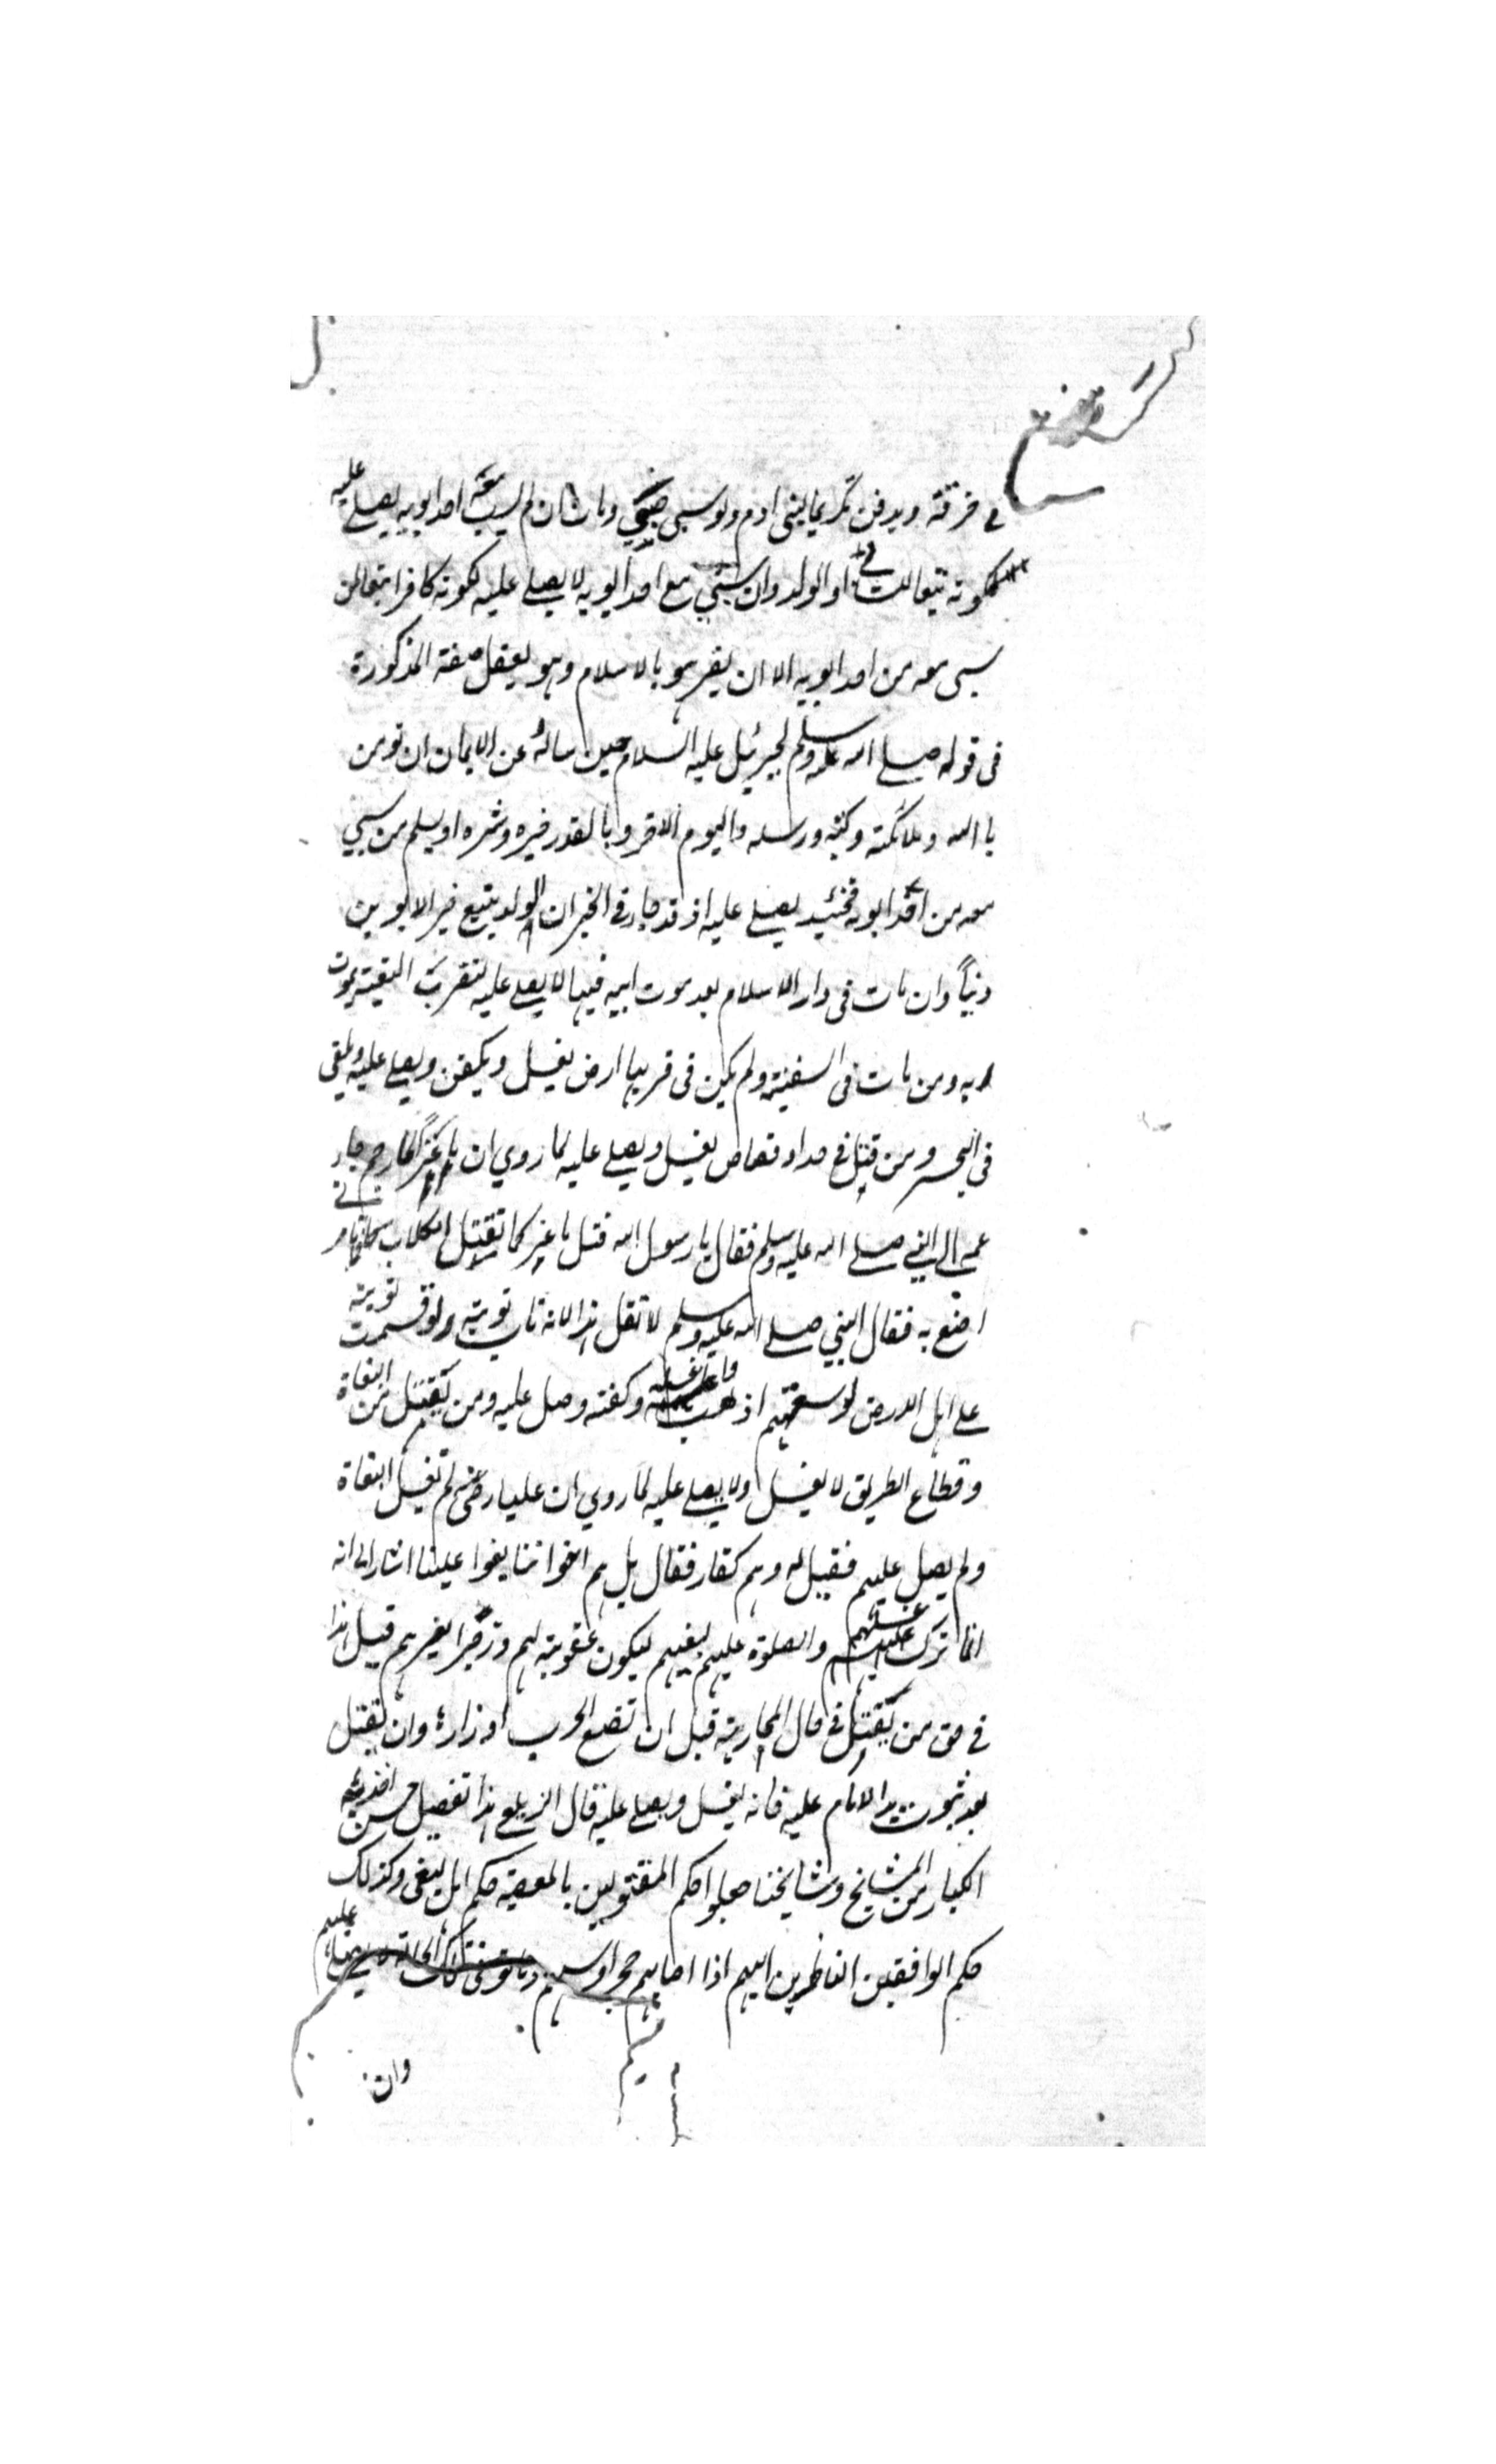 في خرقة ويدفن تكريما لبنى ادم ولو سبي صبي ومات ان لم يسب معه احد ابويه يصلى عليه
لكونه تبعا للسابي او الولد وان سبي مع احد ابويه لا يصلى عليه لكونه كافرا تبعا لمن
سبى معه من احد ابويه الا ان يقر هو بالاسلام وهو يعقل صفته المذكورة
فى قوله صلى الله عليه وسلم لجبرئيل عليه السلام حين ساله عن الايمان ان تومن
بالله وملائكته وكتبه ورسله واليوم الاخر وبالقدر خيره وشره او يسلم من سبي
معه من احد ابويه فحينئذ يصلى عليه اذ قد جاء في الخبر ان الولد يتبع خير الابوين
دينا وان مات فى دار الاسلام بعد موت ابيه فيها لا يصلى عليه لتقرب التبعية بموت
ابيه ومن مات فى السفينة ولم يكن فى قربها ارض يغسل ويكفن ويصلى عليه ويلقى
فى البحر ومن قتل في حد او قصاص يغسل ويصلى عليه لما روي ان ماعزا لما رجم جاء
عمه الى النبي صلى الله عليه وسلم فقال يا رسول الله قتل ماعز كما تقتل الكلاب فما تامر
اصنع به فقال النبي صلى الله عليه وسلم لا تقل هذا لانه تاب توبة لو قسمت توبته
على اهل الارض لوسعتهم اذهب واغسله وكفنه وصل عليه ومن يقتل من البغاة
وقطاع الطريق لا يغسل ولا يصلى عليه لما روي ان عليا رضى لم تغسل البغاة
ولم يصل عليهم فقيل له وهم كفار فقال بل هم اخواننا بغوا علينا اشار الى انه
انما ترك غسلهم والصلوة عليهم لبغيهم ليكون عقوبة لهم وزجرا لغيرهم قيل هذا
في حق من يقتل في حال المحاربة قبل ان تضع الحرب اوزارها وان يقتل
بعد ثبوت يد الامام عليه فانه يغسل ويصلى عليه قال الزيلعي هذا تفصيل حسن اخذ به
الكبار من المشايخ ومشايخنا جعلوا حكم المقتولين بالمعصية حكم اهل البغى وكذلك
حكم الواقفين الناظرين اليهم اذا اصابهم حجر او سهم وماتوا في تلك الحالة عليهم
وان